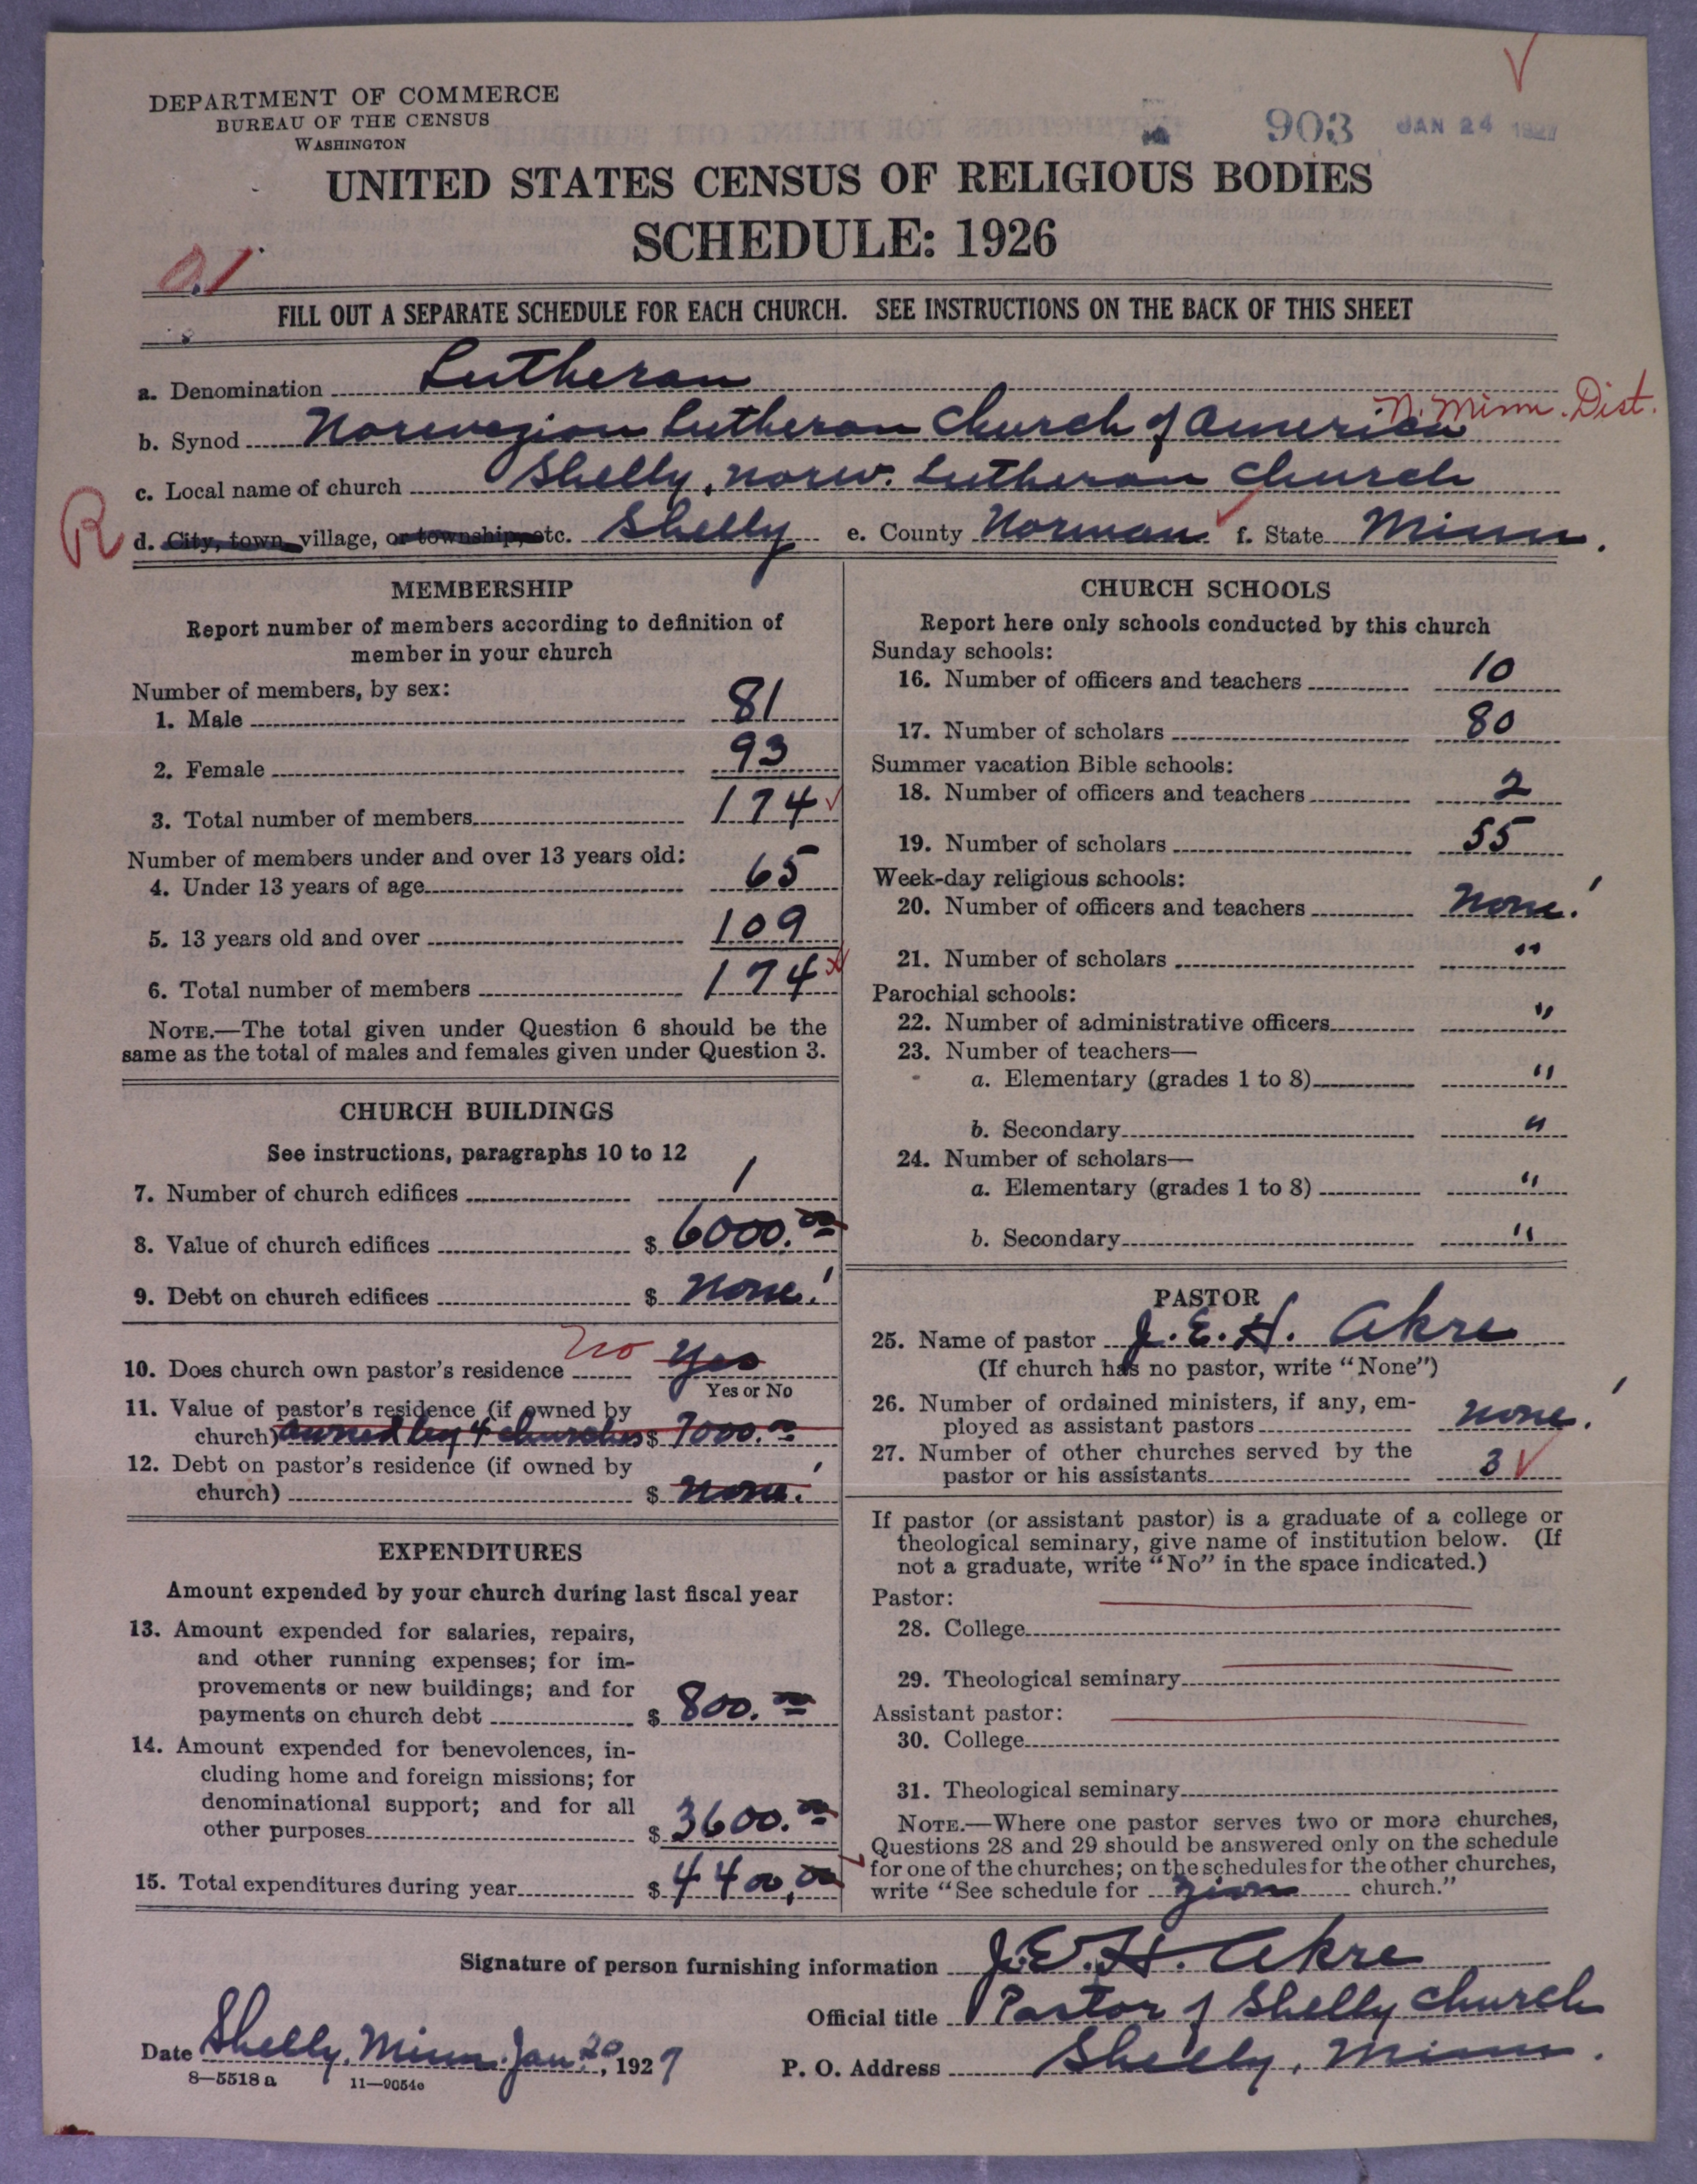 DEPARTMENT OF COMMERCE
BUREAU OF THE CENSUS
WASHINGTON
903 JAN 24 1927
UNITED STATES CENSUS OF RELIGIOUS BODIES
SCHEDULE: 1926
FILL OUT A SEPARATE SCHEDULE FOR EACH CHURCH. SEE INSTRUCTIONS ON THE BACK OF THIS SHEET
a. Denomination Lutheran
N. Minn. Dist.
b. Synod Norwegian Lutheran Church of America
c. Local name of church Shelly, Norw. Lutheran Church
R
d. City, town, village, or township, etc. Shelly e. County Norman f. State Minn.
MEMBERSHIP
Report number of members according to definition of
member in your church
Number of members, by sex:
1. Male 81
2. Female 93
3. Total number of members 174
Number of members under and over 13 years old:
4. Under 13 years of age 65
5. 13 years old and over 109
6. Total number of members 174
NOTE.—The total given under Question 6 should be the
same as the total of males and females given under Question 3.
CHURCH BUILDINGS
See instructions, paragraphs 10 to 12
7. Number of church edifices 1
8. Value of church edifices $ 6000.00
9. Debt on church edifices $ None!
10. Does church own pastor's residence No Yes
Yes or No
11. Value of pastor's residence (if owned by
church) owned by 4 churches $ 7000.00
12. Debt on pastor's residence (if owned by
church) $ None!
EXPENDITURES
Amount expended by your church during last fiscal year
13. Amount expended for salaries, repairs,
and other running expenses; for im-
provements or new buildings; and for
payments on church debt $ 800.00
14. Amount expended for benevolences, in-
cluding home and foreign missions; for
denominational support; and for all
other purposes $ 3600.00
15. Total expenditures during year $ 4400,00
CHURCH SCHOOLS
Report here only schools conducted by this church
Sunday schools:
16. Number of officers and teachers 10
17. Number of scholars 80
Summer vacation Bible schools:
18. Number of officers and teachers 2
19. Number of scholars 55
Week-day religious schools:
20. Number of officers and teachers None!
21. Number of scholars "
Parochial schools:
22. Number of administrative officers "
23. Number of teachers—
a. Elementary (grades 1 to 8) "
b. Secondary "
24. Number of scholars—
a. Elementary (grades 1 to 8) "
b. Secondary "
PASTOR
25. Name of pastor J. E. H. Akre
(If church has no pastor, write "None")
26. Number of ordained ministers, if any, em-
ployed as assistant pastors None!
27. Number of other churches served by the
pastor or his assistants 3
If pastor (or assistant pastor) is a graduate of a college or
theological seminary, give name of institution below. (If
not a graduate, write "No" in the space indicated.)
Pastor:
28. College
29. Theological seminary
Assistant pastor:
30. College
31. Theological seminary
NOTE.—Where one pastor serves two or more churches,
Questions 28 and 29 should be answered only on the schedule
for one of the churches; on the schedules for the other churches,
write "See schedule for Zion church."
Signature of person furnishing information J. E. H. Akre
Official title Pastor of Shelly Church
Date Shelly, Minn. Jan 20, 1927 P. O. Address Shelly, Minn.
8—5518 a 11—9054e